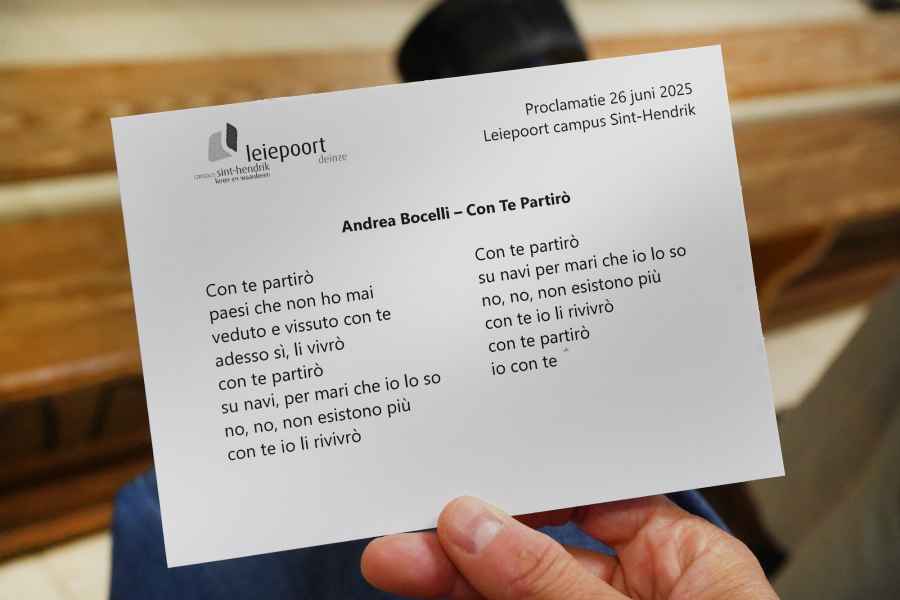 leiepoort
deinze
campus sint-hendrik
Proclamatie 26 juni 2025
Leiepoort campus Sint-Hendrik
Andrea Bocelli – Con Te Partirò
Con te partirò
paesi che non ho mai
veduto e vissuto con te
adesso sì, li vivrò
con te partirò
su navi, per mari che io lo so
no, no, non esistono più
con te io li rivivrò
Con te partirò
su navi per mari che io lo so
no, no, non esistono più
con te io li rivivrò
con te partirò
io con te